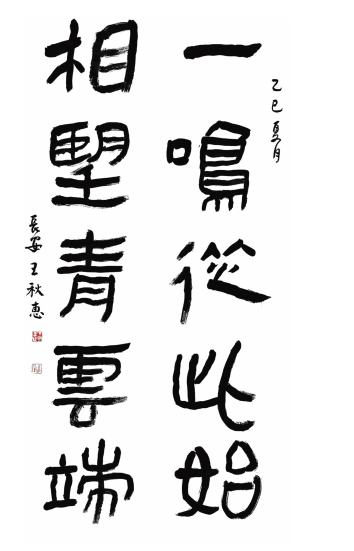 乙巳夏月
一鳴從此始
相望青雲端
長安王秋惠